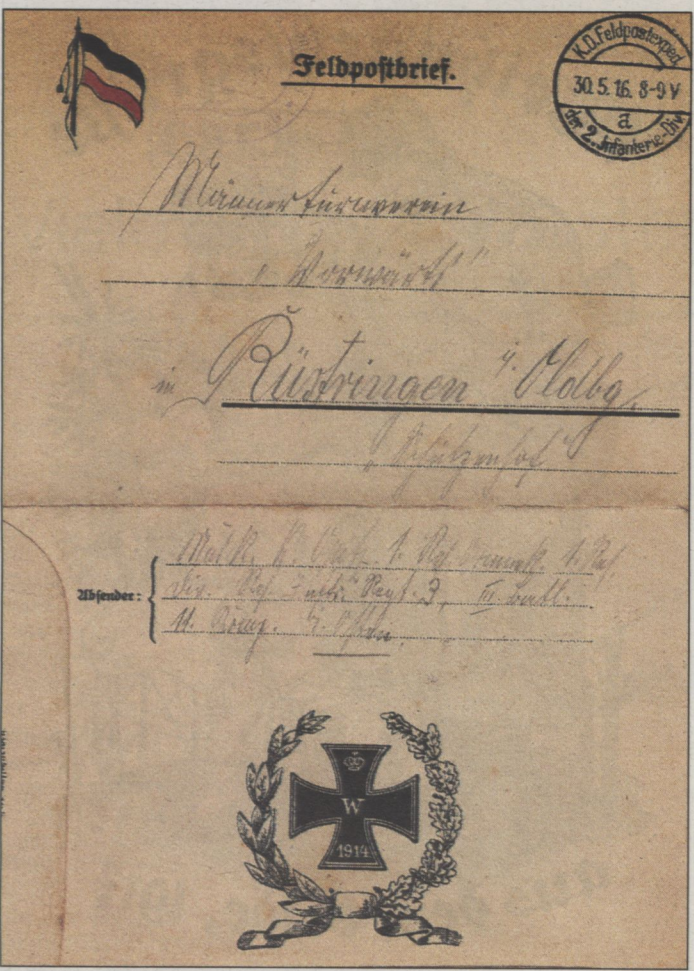 Feldpostbrief.
K.D. Feldpostexped.
30.5.16. 8-9V
a
der 2. Infanterie-Div.
Männerturnverein
„Vorwärts“
in Rüstringen i. Oldbg.
„Schützenhof“
Absender:
1. Res. 1. Res.
Div. Res. Inftr. Regt. 3, III Batl.
11. Komp. Osten.
W
1914